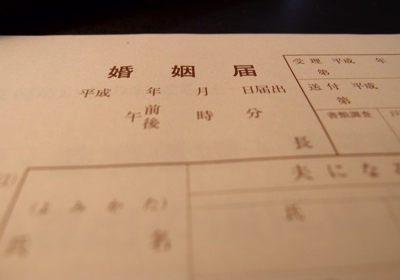 婚姻届
受理 平成 年
第
平成 年 月 日届出
送付 平成
第
午前後 時 分
書類調査 戸
長
(1)
夫になる
(よみかた)
氏
氏名